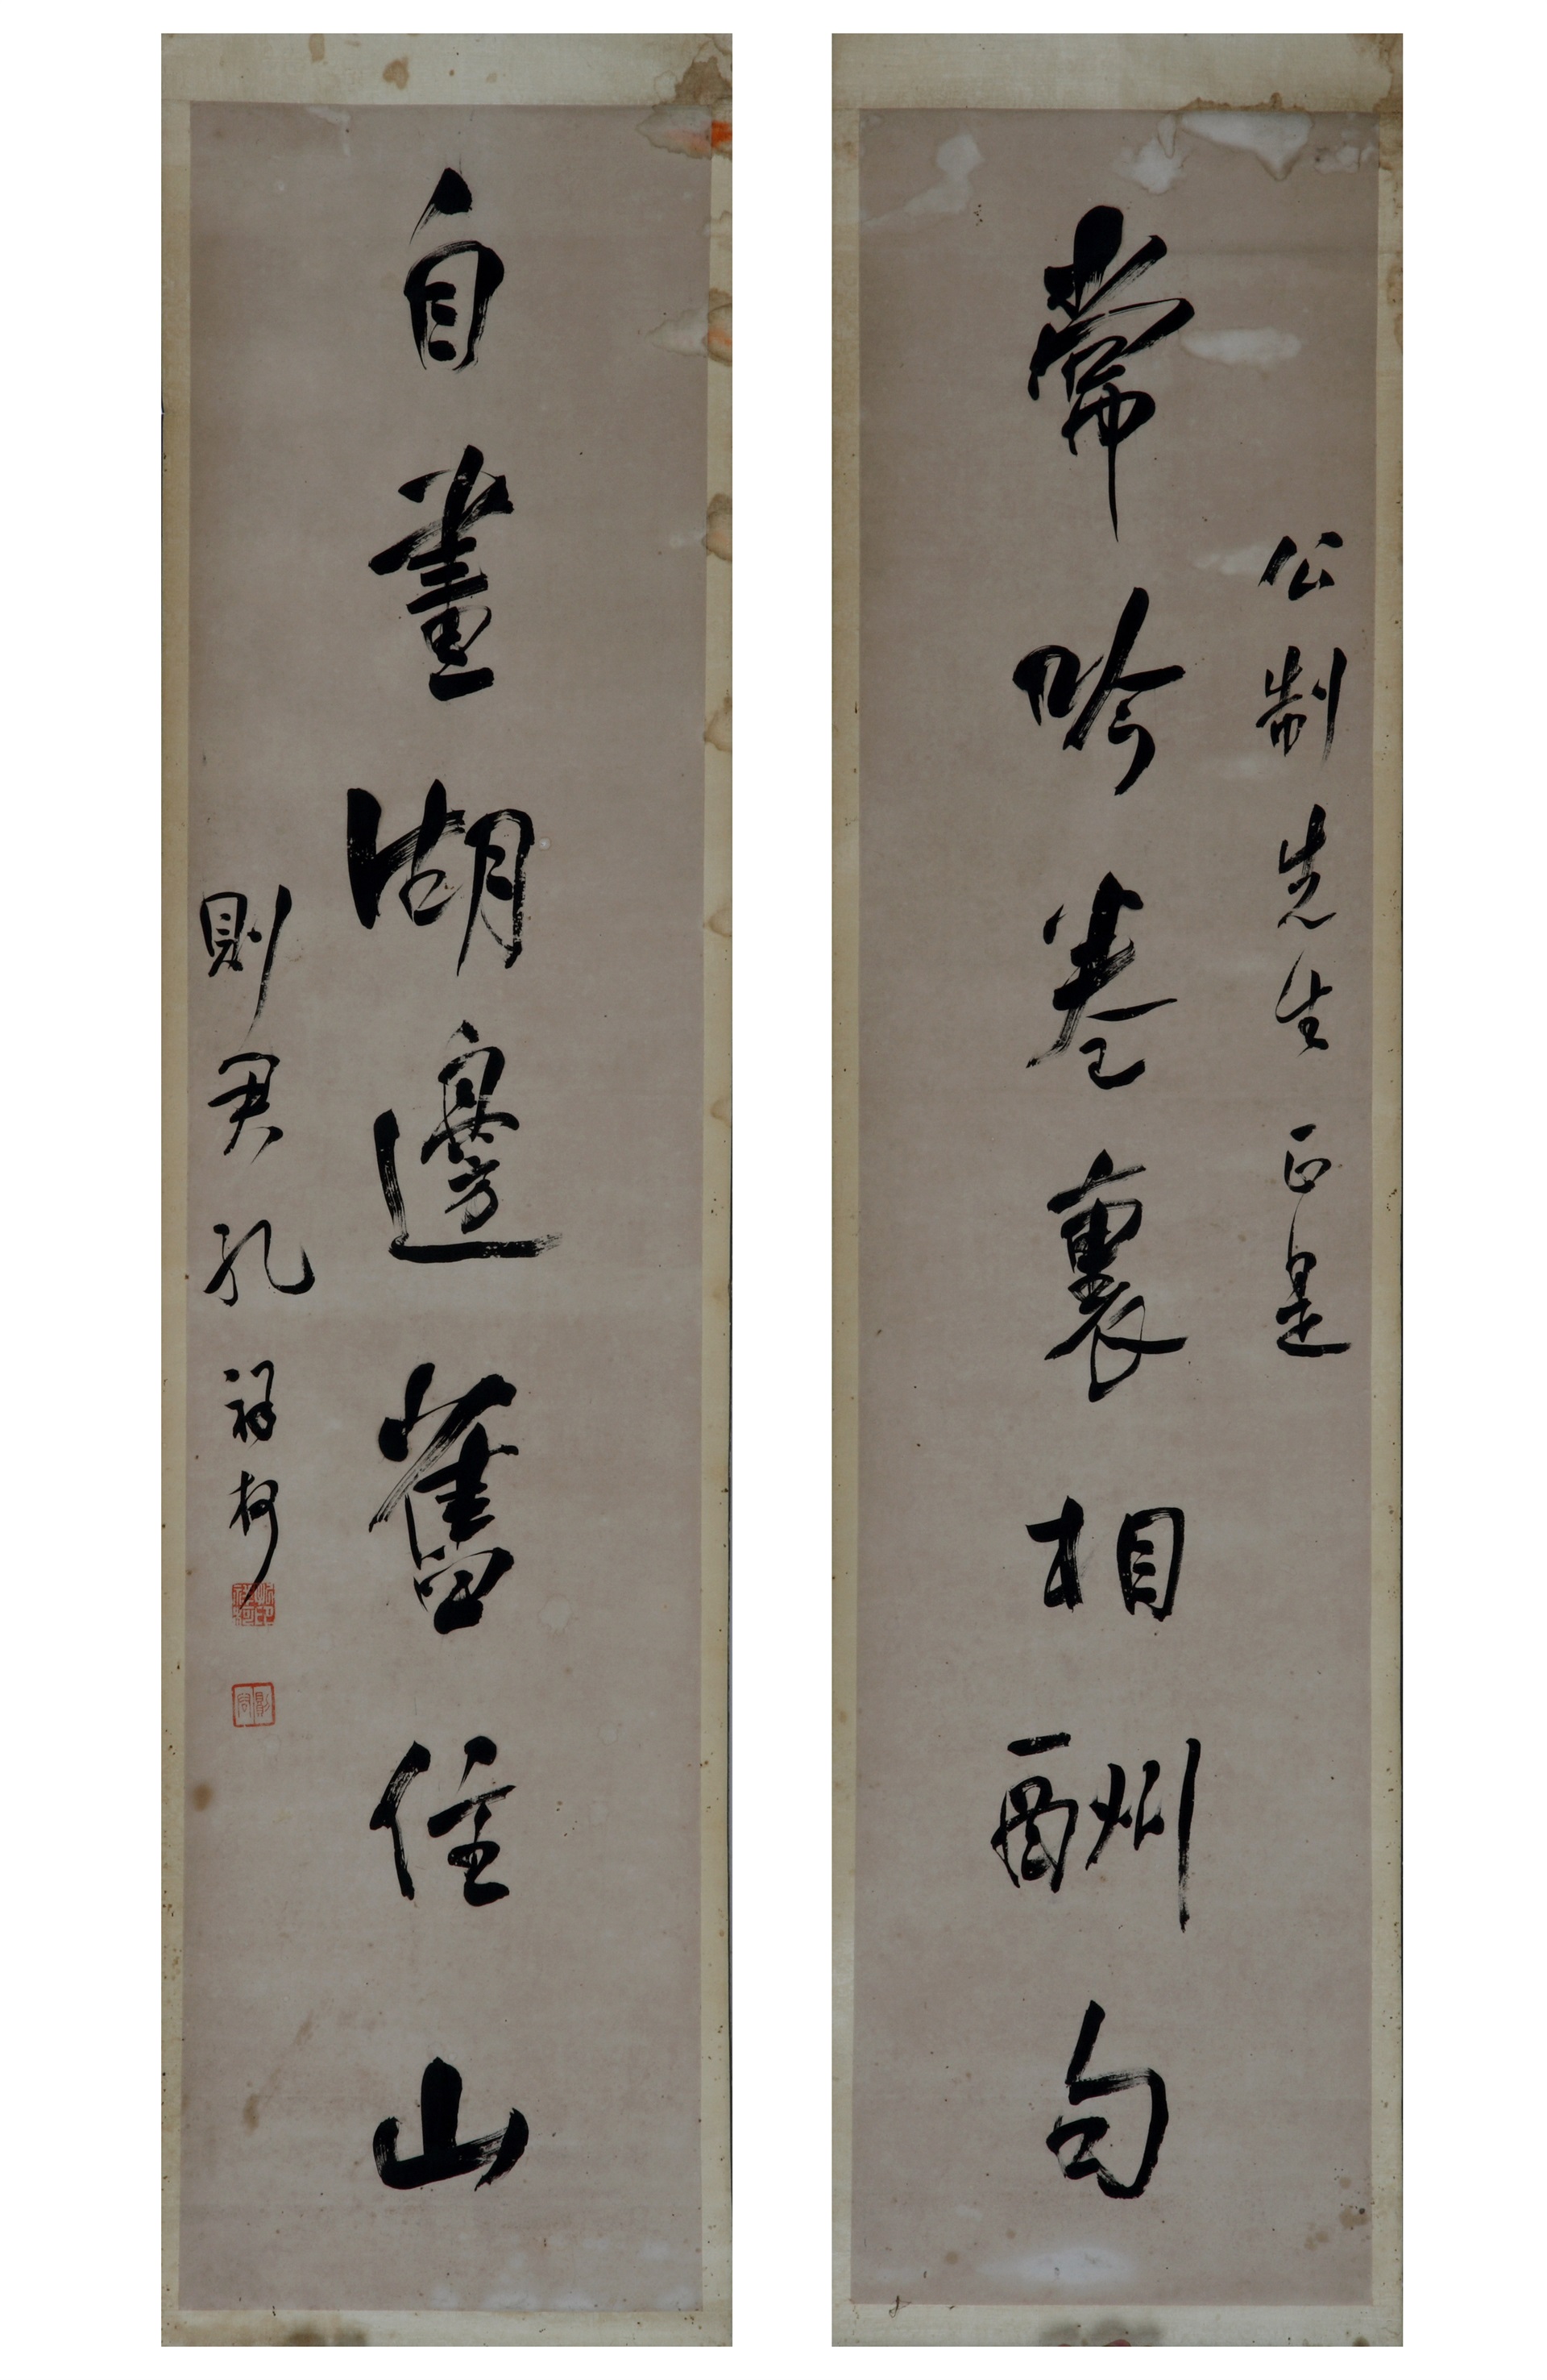 公制先生正是
常吟卷裏相酬句
自畫湖邊舊住山
則君孔祥柯